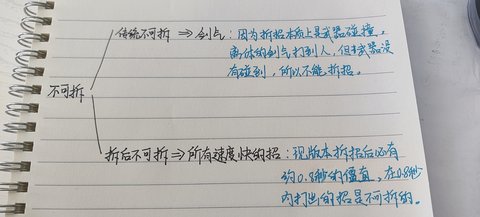 传统不可拆 ⇒ 剑气：因为拆招本质上是武器碰撞，
离体的剑气打到人，但武器没
有碰到，所以不能拆招。
不可拆
拆后不可拆 ⇒ 所有速度快的招：现版本拆招后还有
约0.8秒的僵直，在0.8秒
内打出的招是不可拆的。